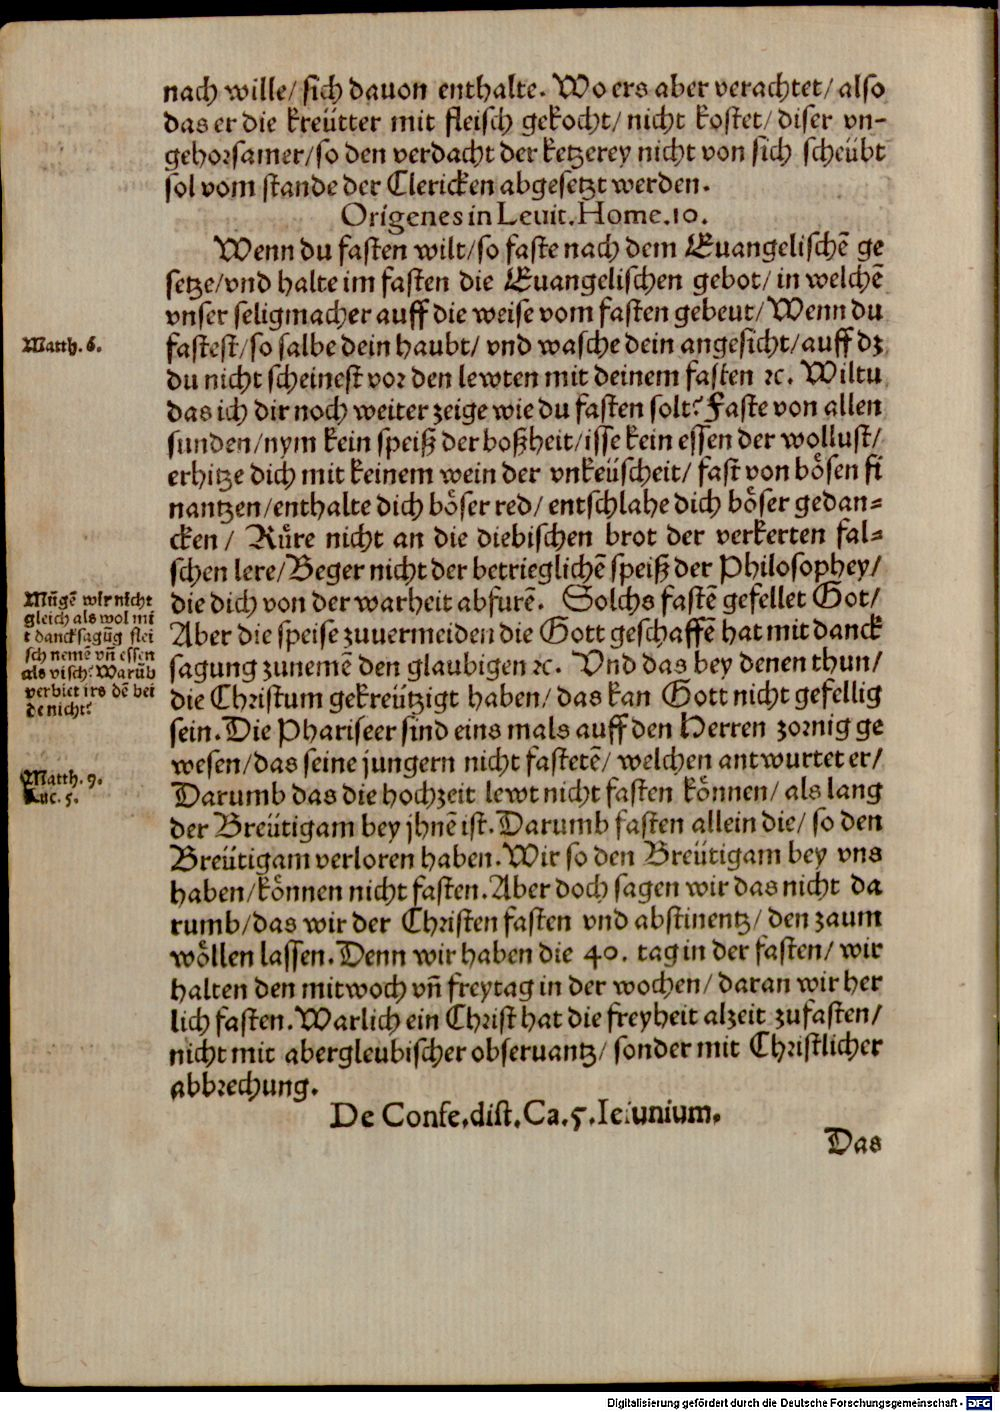 nach wille/ sich dauon enthalte. Wo ers aber verachtet/ also
das er die kreütter mit fleisch gekocht/ nicht kostet/ diser vn-
gehorsamer/ so den verdacht der ketzerey nicht von sich scheübt
sol vom stande der Clericken abgesetzt werden.
Origenes in Leuit. Home. 10.
Wenn du fasten wilt/ so faste nach dem Euangelischē ge
setze/ vnd halte im fasten die Euangelischen gebot/ in welchē
vnser seligmacher auff die weise vom fasten gebeut/ Wenn du
Matth. 6.
fastest/ so salbe dein haubt/ vnd wasche dein angesicht/ auff dz
du nicht scheinest vor den lewten mit deinem fasten ꝛc. Wiltu
das ich dir noch weiter zeige wie du fasten solt? Faste von allen
sunden/ nym kein speiß der boßheit/ isse kein essen der wollust/
erhitze dich mit keinem wein der vnkeüscheit/ fast von bösen fi
nantzen/ enthalte dich böser red/ entschlahe dich böser gedan-
cken/ Rüre nicht an die diebischen brot der verkerten fal-
schen lere/ Beger nicht der betrieglichē speiß der Philosophey/
Mügē wir nicht
gleich als wol mi
t dancksagūg flei
sch nemē vñ essen
als visch? Warūb
verbiet irs dē bei
de nicht?
die dich von der warheit abfurē. Solchs fastē gefellet Got/
Aber die speise zuuermeiden die Gott geschaffē hat mit danck
sagung zunemē den glaubigen ꝛc. Vnd das bey denen thun/
die Christum gekreützigt haben/ das kan Gott nicht gefellig
sein. Die Phariseer sind eins mals auff den Herren zornig ge
wesen/ das seine jungern nicht fastetē/ welchen antwurtet er/
Matth. 9.
Luc. 5.
Darumb das die hochzeit lewt nicht fasten können/ als lang
der Breütigam bey jhnē ist. Darumb fasten allein die/ so den
Breütigam verloren haben. Wir so den Breütigam bey vns
haben/ können nicht fasten. Aber doch sagen wir das nicht da
rumb/ das wir der Christen fasten vnd abstinentz/ den zaum
wöllen lassen. Denn wir haben die 40. tag in der fasten/ wir
halten den mitwoch vñ freytag in der wochen/ daran wir her
lich fasten. Warlich ein Christ hat die freyheit alzeit zufasten/
nicht mit abergleubischer obseruantz/ sonder mit Christlicher
abbrechung.
De Conse. dist. Ca. 5. Ieiunium.
Das
Digitalisierung gefördert durch die Deutsche Forschungsgemeinschaft - DFG